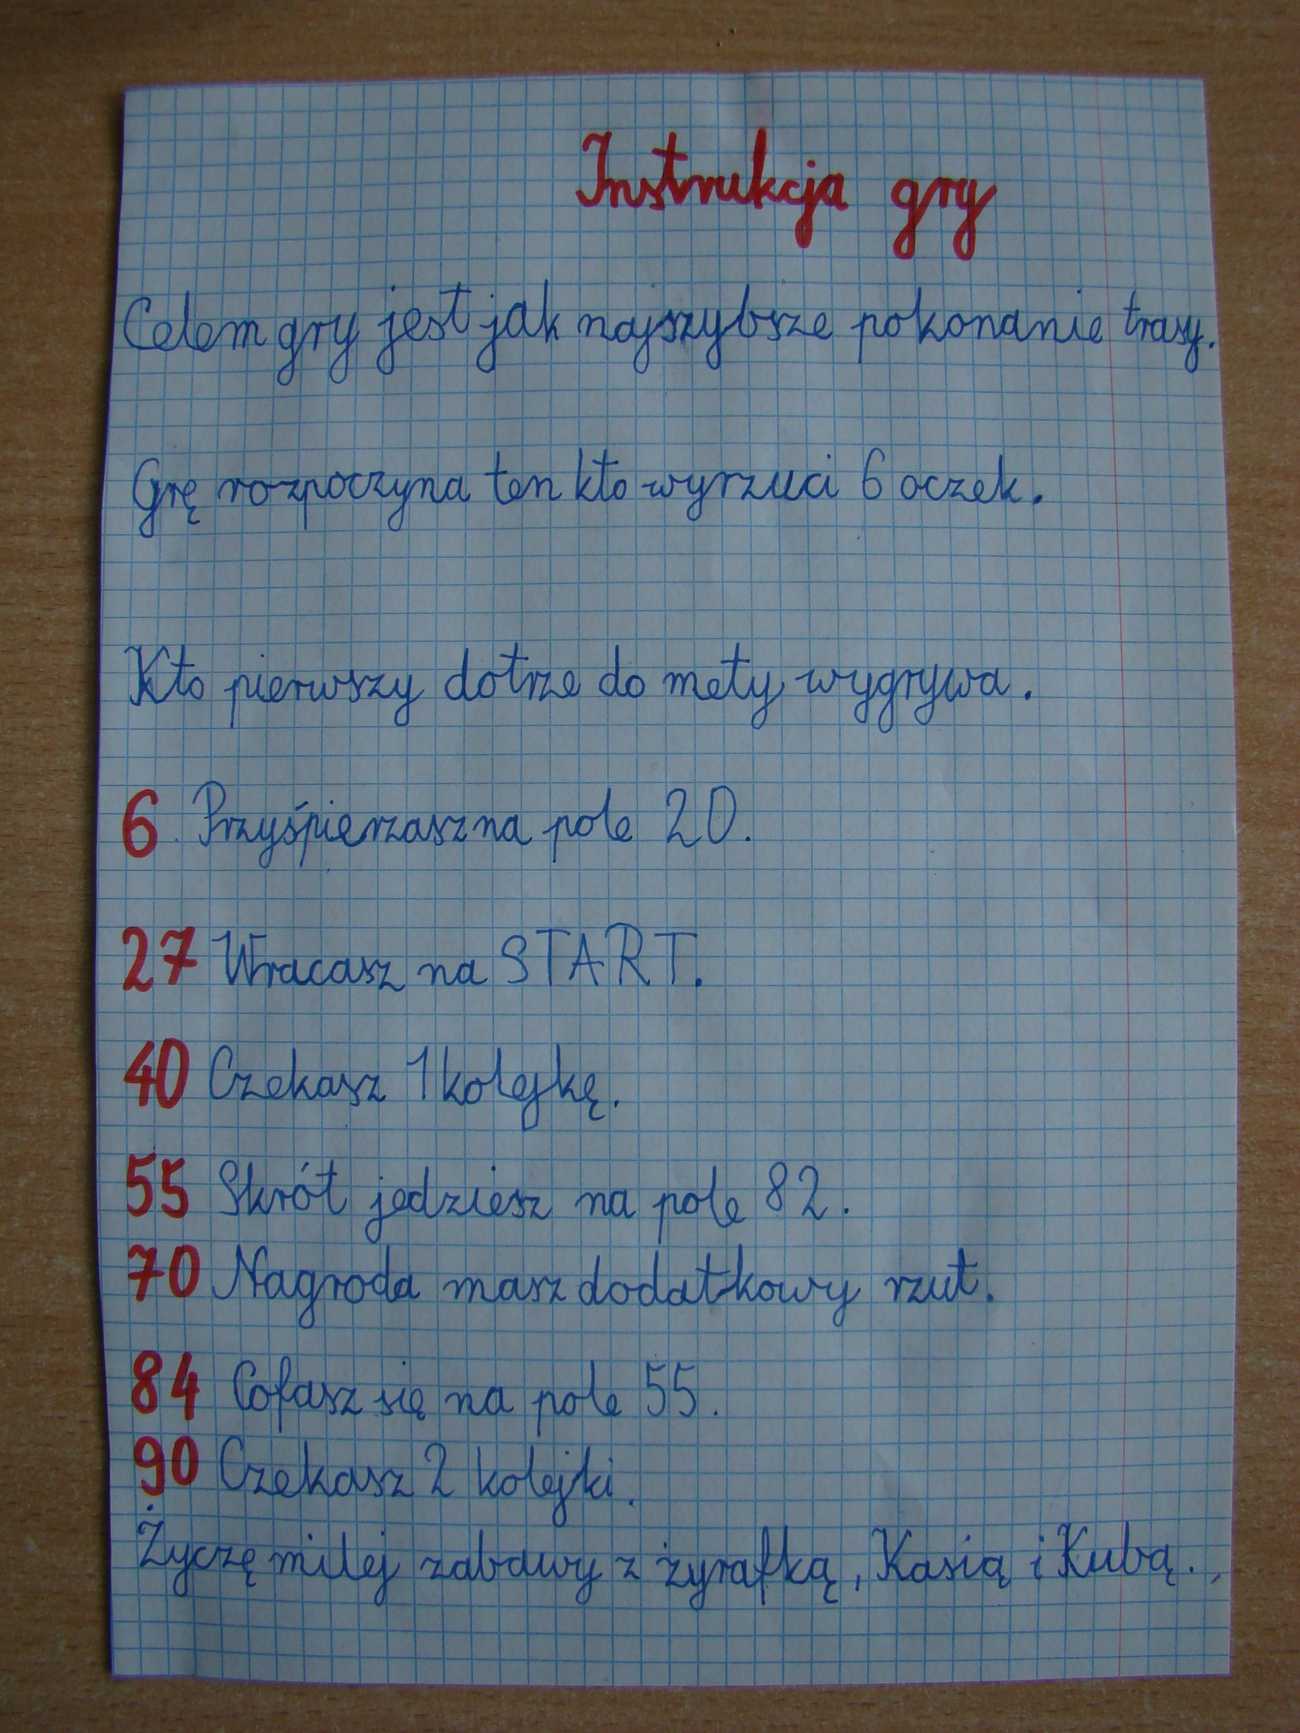 Instrukcja gry
Celem gry jest jak najszybsze pokonanie trasy.
Grę rozpoczyna ten kto wyrzuci 6 oczek.
Kto pierwszy dotrze do mety wygrywa.
6 Przyśpierzasz na pole 20.
27 Wracasz na START.
40 Czekasz 1 kolejkę.
55 Skrót jedziesz na pole 82.
70 Nagroda masz dodatkowy rzut.
84 Cofasz się na pole 55.
90 Czekasz 2 kolejki.
Życzę miłej zabawy z żyrafką, Kasią i Kubą.